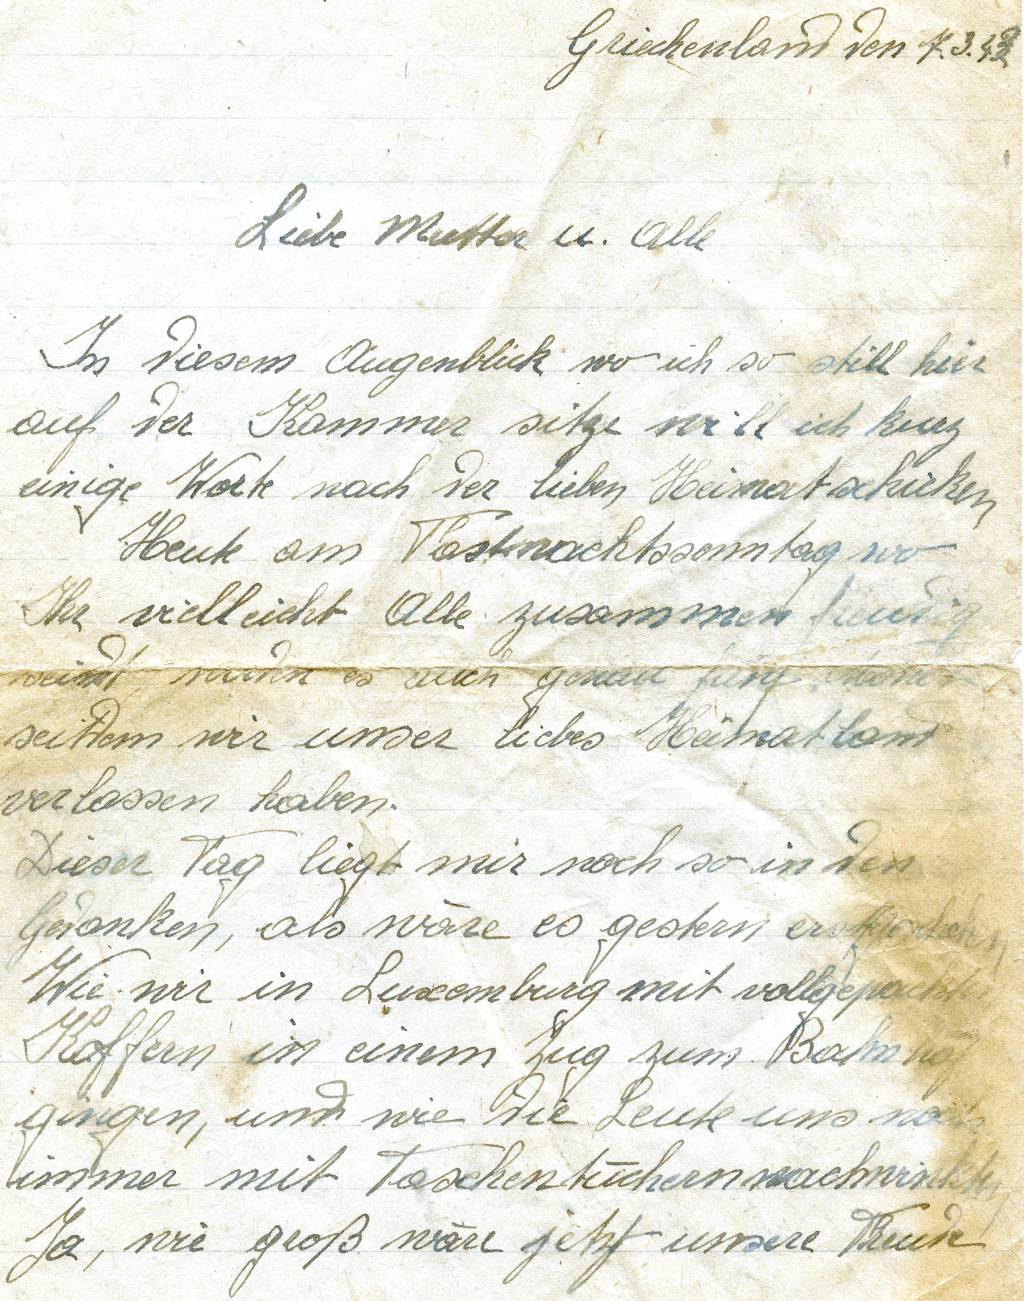 Griechenland den 7.3.43
Liebe Mutter u. Alle
In diesem Augenblick wo ich so still hier
auf der Kammer sitze will ich kurz
einige Worte nach der lieben Heimat schicken
Heute am Fastnachtssonntag wo
Ihr vielleicht Alle zusammen freudig
seid es auch genau fünf
seitdem wir unser liebes Heimatland
verlassen haben.
Dieser Tag liegt mir noch so in den
Gedanken, als wäre es gestern erst
Wie wir in Luxemburg mit vollgepackten
Koffern in einem Zug zum Bahnhof
gingen, und wie die Leute uns noch
immer mit Taschentüchern nachwinkten
Ja, wie groß wäre jetzt unsere Freude